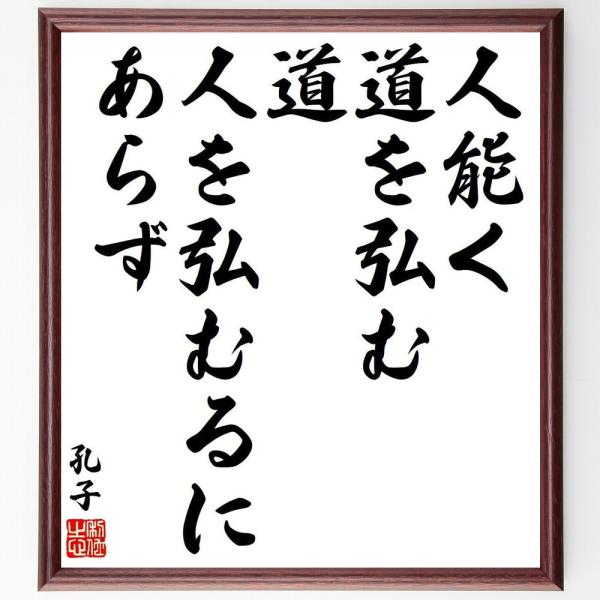 人能く
道を弘む
道
人を弘むるに
あらず
孔子